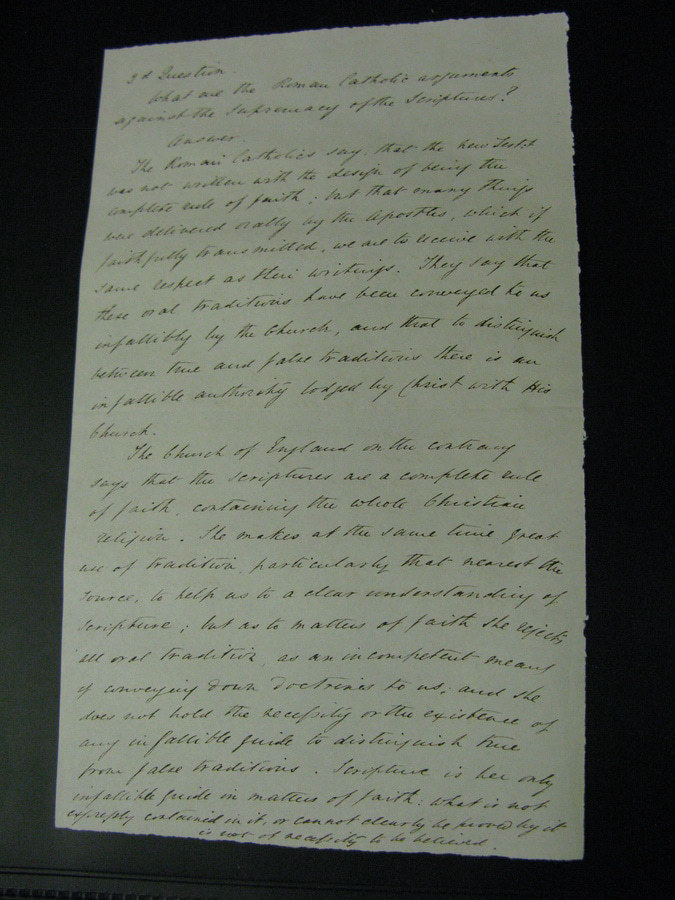 3d Question.
What are the Roman Catholic arguments
against the Supremacy of the Scriptures?
Answer.
The Roman Catholics say, that the new Testt
was not written with the design of being the
complete rule of faith; but that many things
were delivered orally by the Apostles, which if
faithfully transmitted, we are to receive with the
same respect as their writings. They say that
these oral traditions have been conveyed to us
infallibly by the Church, and that to distinguish
between true and false traditions there is an
infallible authority lodged by Christ with His
Church.
The Church of England on the contrary
says that the Scriptures are a complete rule
of faith, containing the whole Christian
religion. She makes at the same time great
use of tradition, particularly that nearest the
source, to help us to a clear understanding of
Scripture; but as to matters of faith she rejects
all oral tradition, as an incompetent means
of conveying down doctrines to us; and she
does not hold the necessity or the existence of
any infallible guide to distinguish true
from false traditions. Scripture is her only
infallible guide in matters of faith: what is not
expressly contained in it, or cannot clearly be proved by it
is not of necessity to be believed.